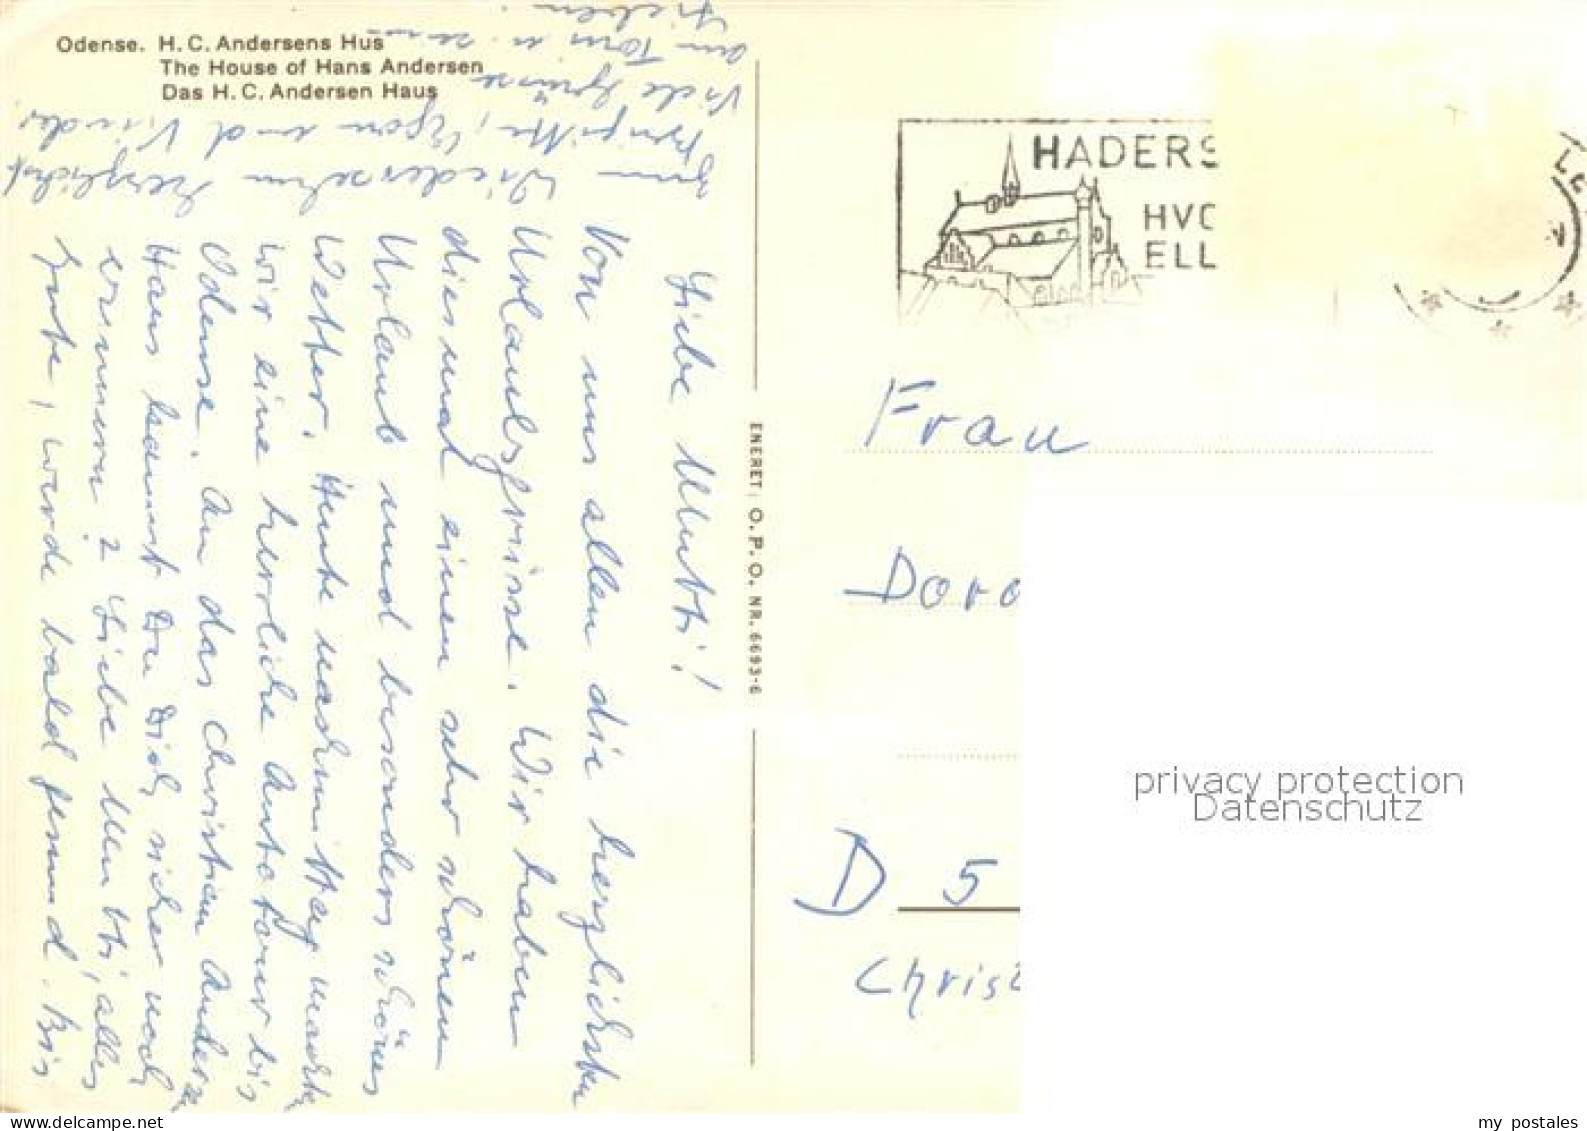 Odense. H. C. Andersens Hus
The House of Hans Andersen
Das H. C. Andersen Haus
Liebe Mutti!
Von uns allen die herzlichsten
Urlaubsgrüsse. Wir haben
diesmal einen sehr schönen
Urlaub und besonders schönes
Wetter. Heute nachmittag machten
wir eine herrliche Autotour bis
Odense. An das Christian Andersen
Haus kannst Du Dich sicher noch
erinnern? Liebe Mutti, alles
Gute, werde bald gesund. Bis
zum Wiedersehn herzlichst
Brigitte, Egon und Kinder.
Viele Grüsse
an Tom u. seine
Lieben.
ENERET: O. P. O. NR. 6693-6
HADERS
HVO
ELL
Frau
Doro
D 5
Christ
privacy protection
Datenschutz
www.delcampe.net
my_postales